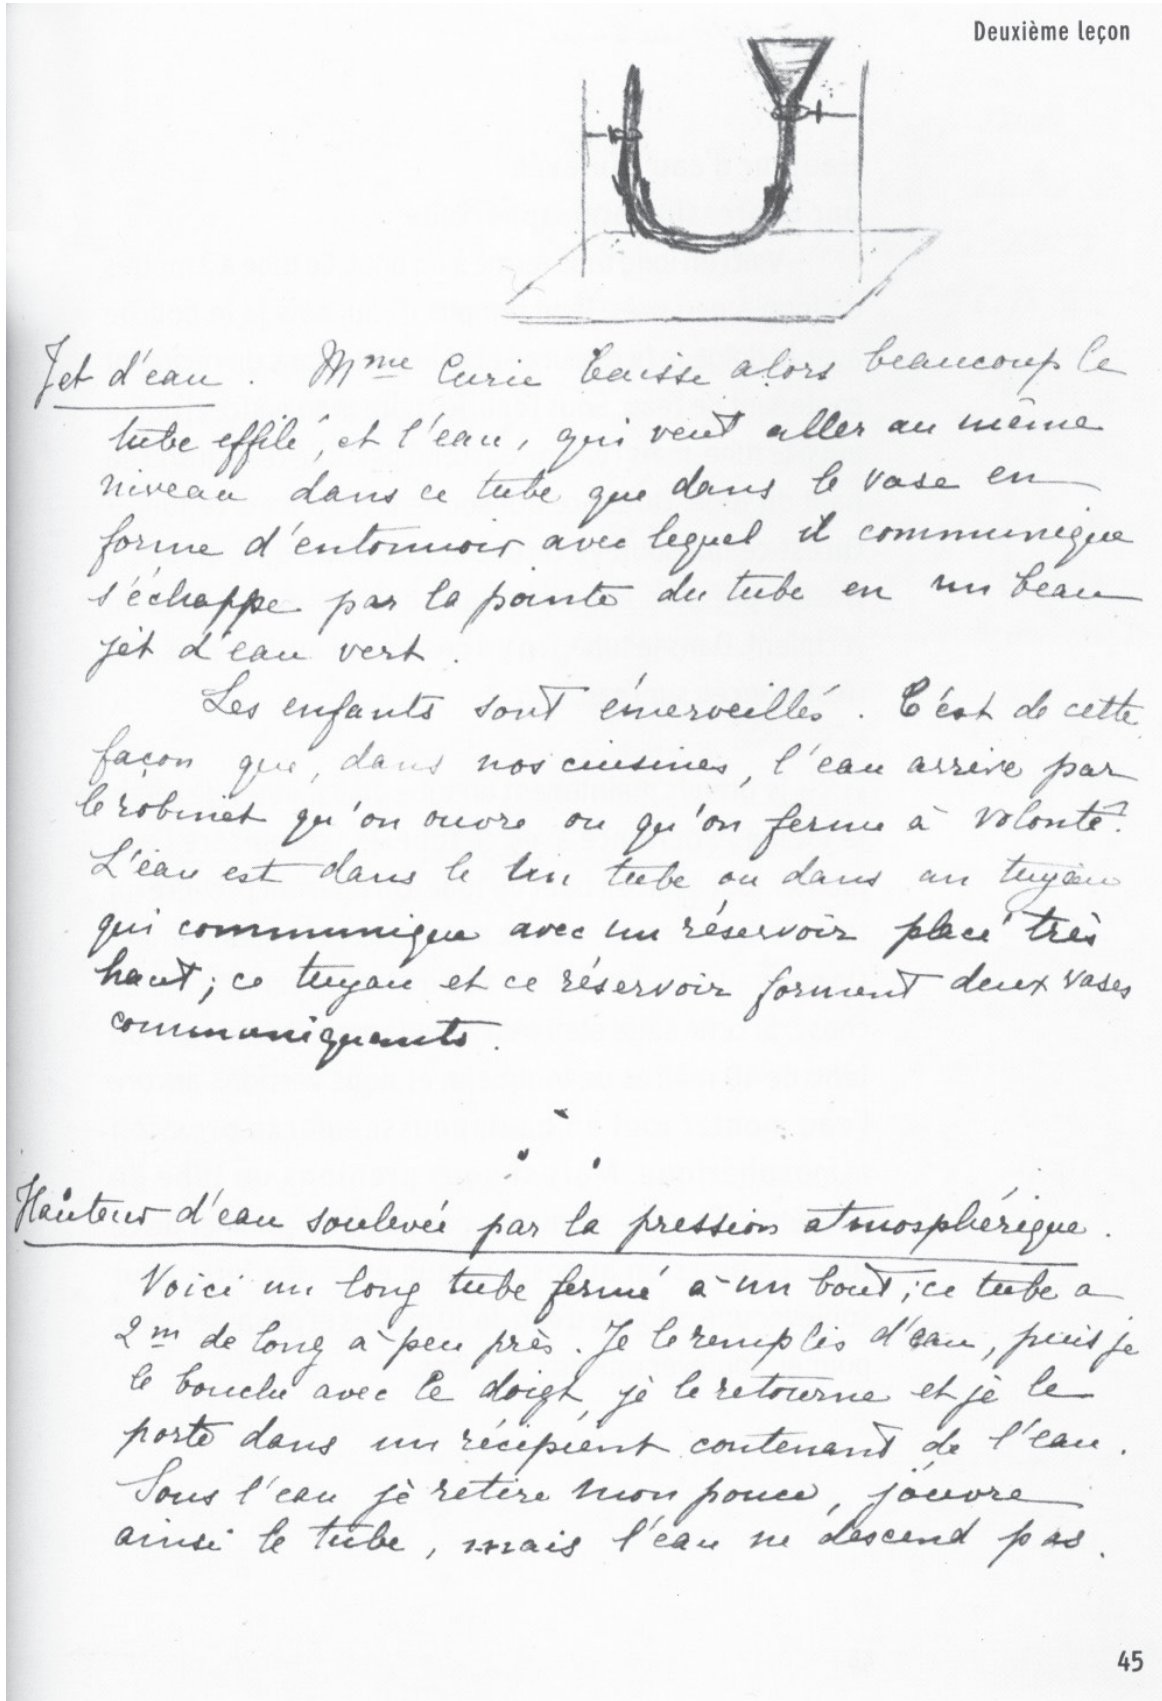 Deuxième leçon
Jet d'eau. Mme Curie baisse alors beaucoup le
tube effilé, et l'eau, qui veut aller au même
niveau dans ce tube que dans le vase en
forme d'entonnoir avec lequel il communique
s'échappe par la pointe du tube en un beau
jet d'eau vert.
Les enfants sont émerveillés. C'est de cette
façon que, dans nos cuisines, l'eau arrive par
le robinet qu'on ouvre ou qu'on ferme à volonté.
L'eau est dans le un tube ou dans un tuyau
qui communique avec un réservoir placé très
haut; ce tuyau et ce réservoir forment deux vases
communiquants.
Hauteur d'eau soulevée par la pression atmosphérique.
Voici un long tube fermé à un bout; ce tube a
2m de long à peu près. Je le remplis d'eau, puis je
le bouche avec le doigt, je le retourne et je le
porte dans un récipient contenant de l'eau.
Sous l'eau je retire mon pouce, j'ouvre
ainsi le tube, mais l'eau ne descend pas.
45